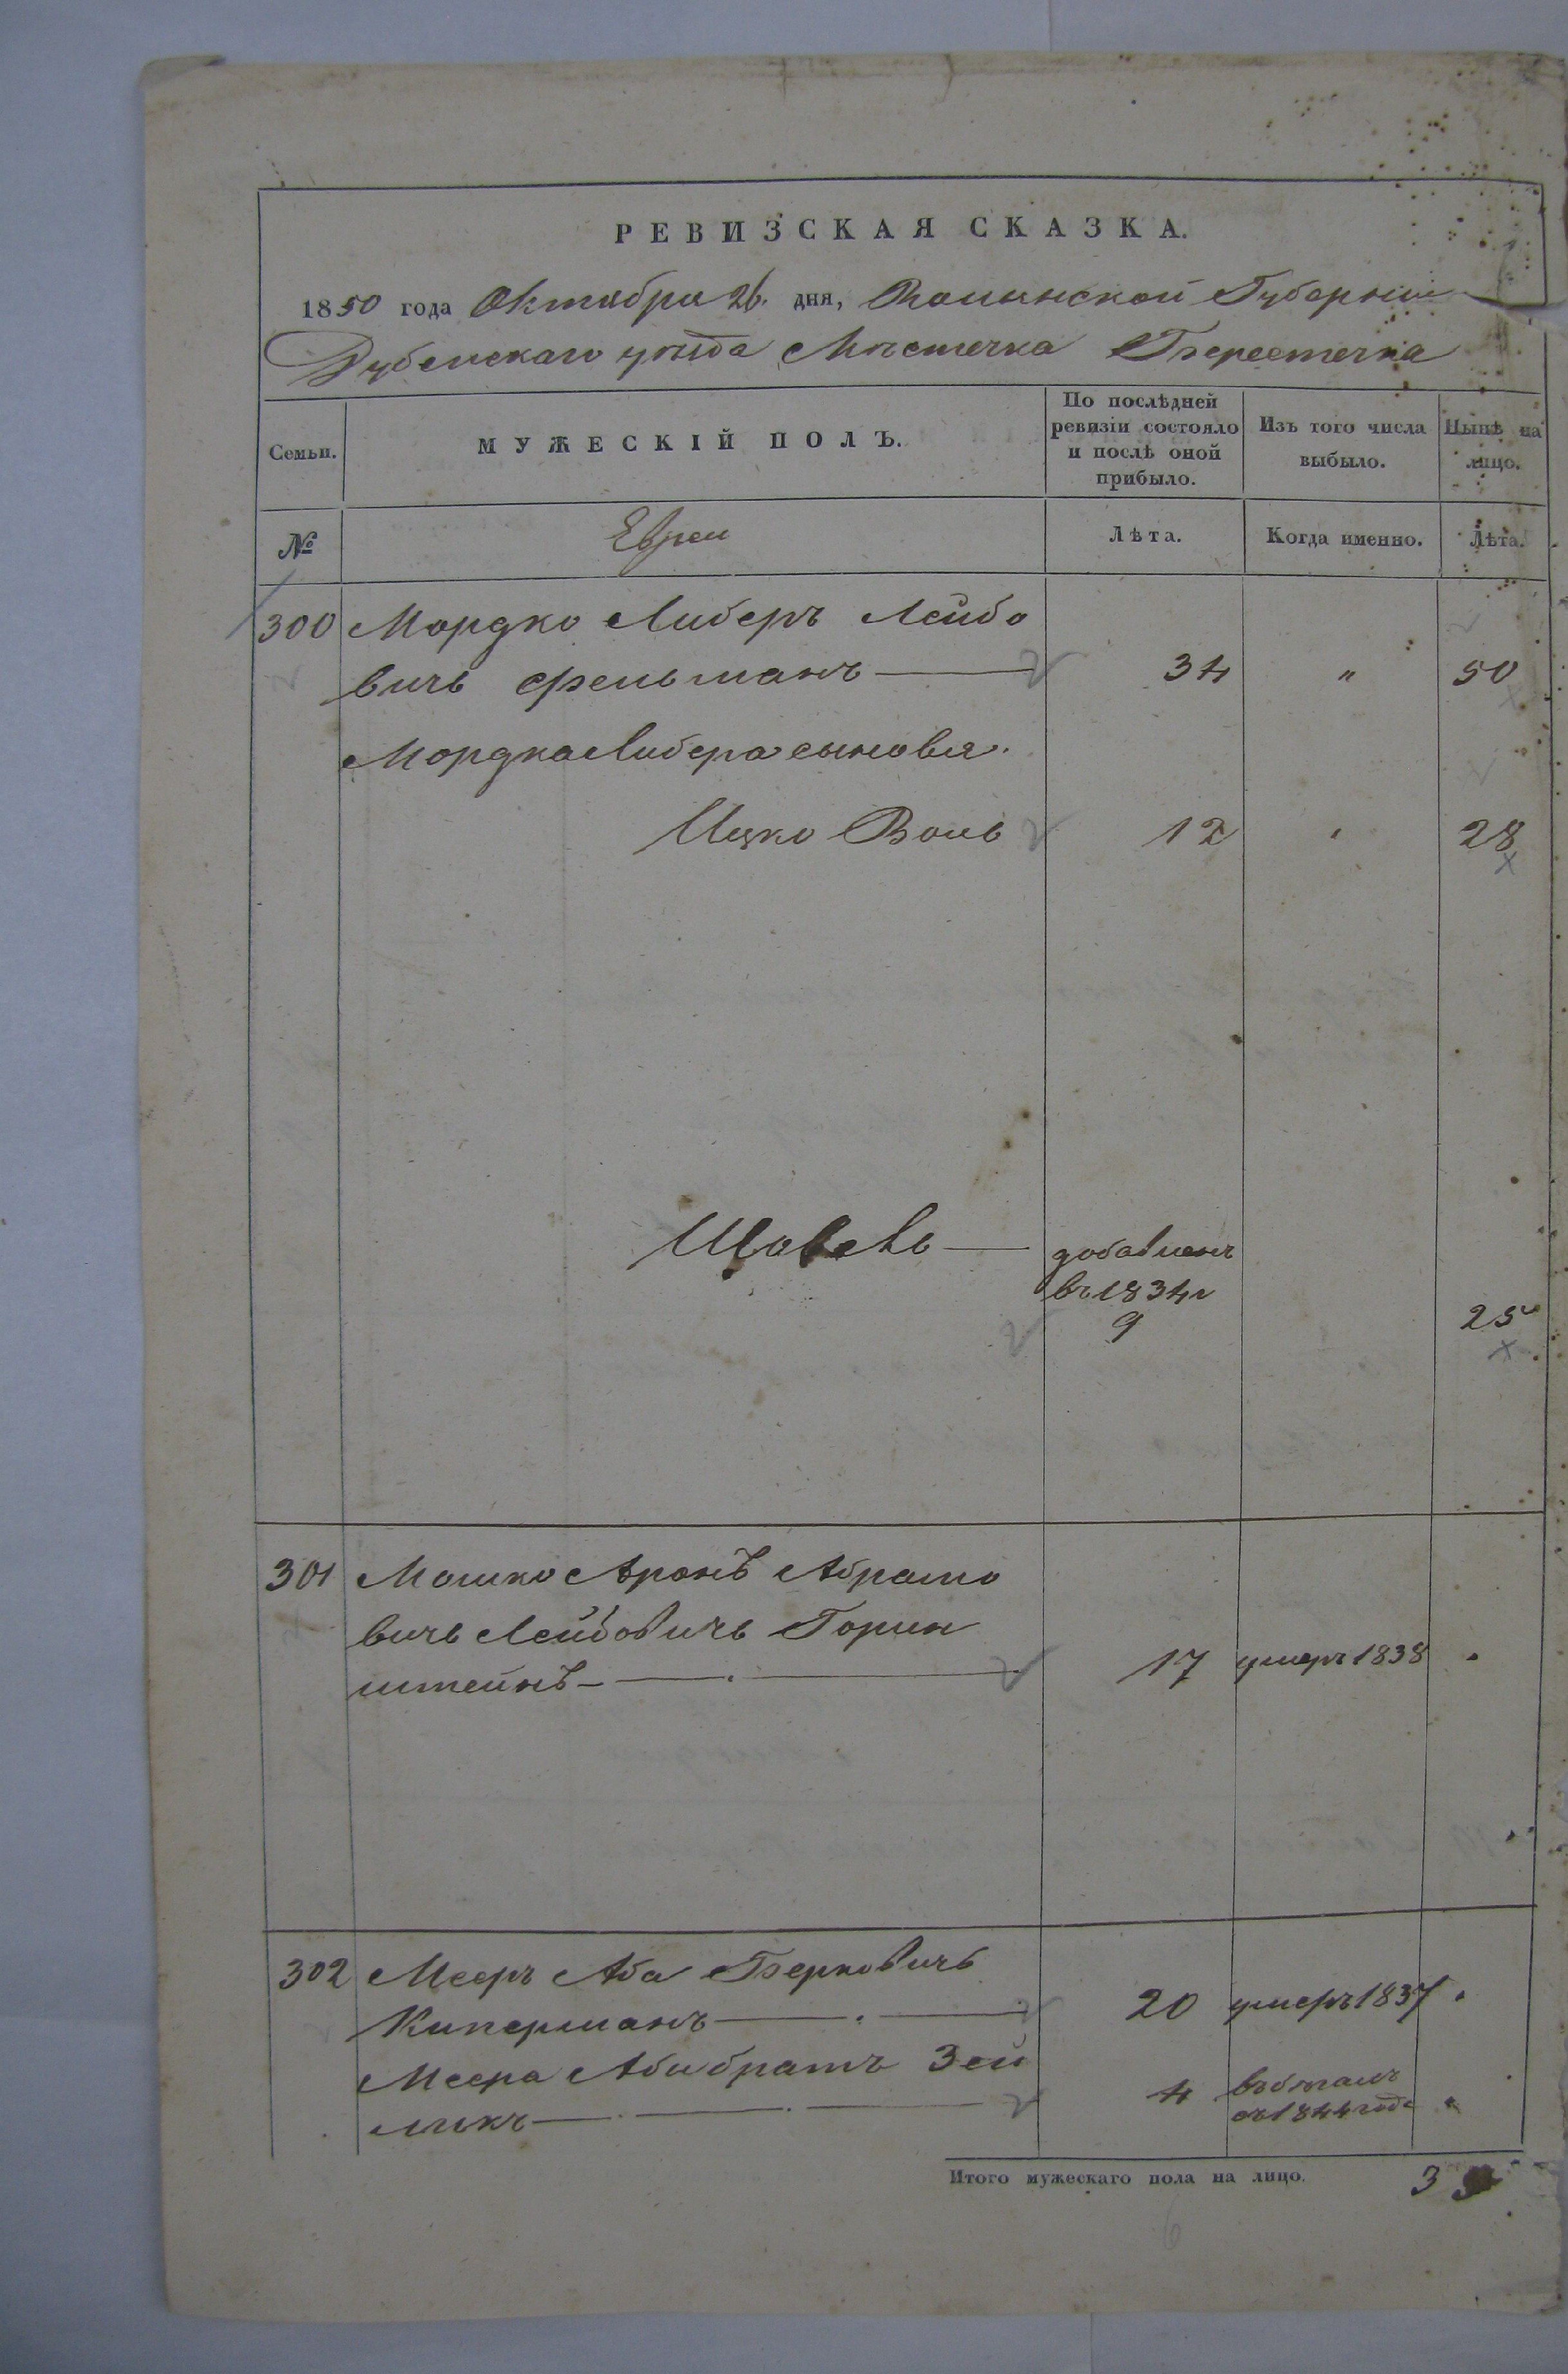 РЕВИЗСКАЯ СКАЗКА.
1850 года Октября 26. дня, Волынской Губернии
Дубенскаго уѣзда Мѣстечка Берестечка
Семьи.
МУЖЕСКІЙ ПОЛЪ.
По послѣдней ревизіи состояло и послѣ оной прибыло.
Изъ того числа выбыло.
Нынѣ на лицо.
№
Евреи
Лѣта.
Когда именно.
Лѣта.
300 Мордко Либеръ Лейбо
вичь Фельманъ — 34 " 50
Мордка Либера сыновья.
Ицко Воль 12 " 28
— добавленъ
въ 1834 г
9 25
301 Мошко Аронъ Абрамо
вичь Лейбовичь Горин
штейнъ — 17 умеръ 1838 "
302 Мееръ Аба Берковичь
Киперманъ — 20 умеръ 1837 "
Меера Абы братъ Зей
ликъ — 4 въ бѣгахъ
съ 1844 года "
Итого мужескаго пола на лицо. 3
6